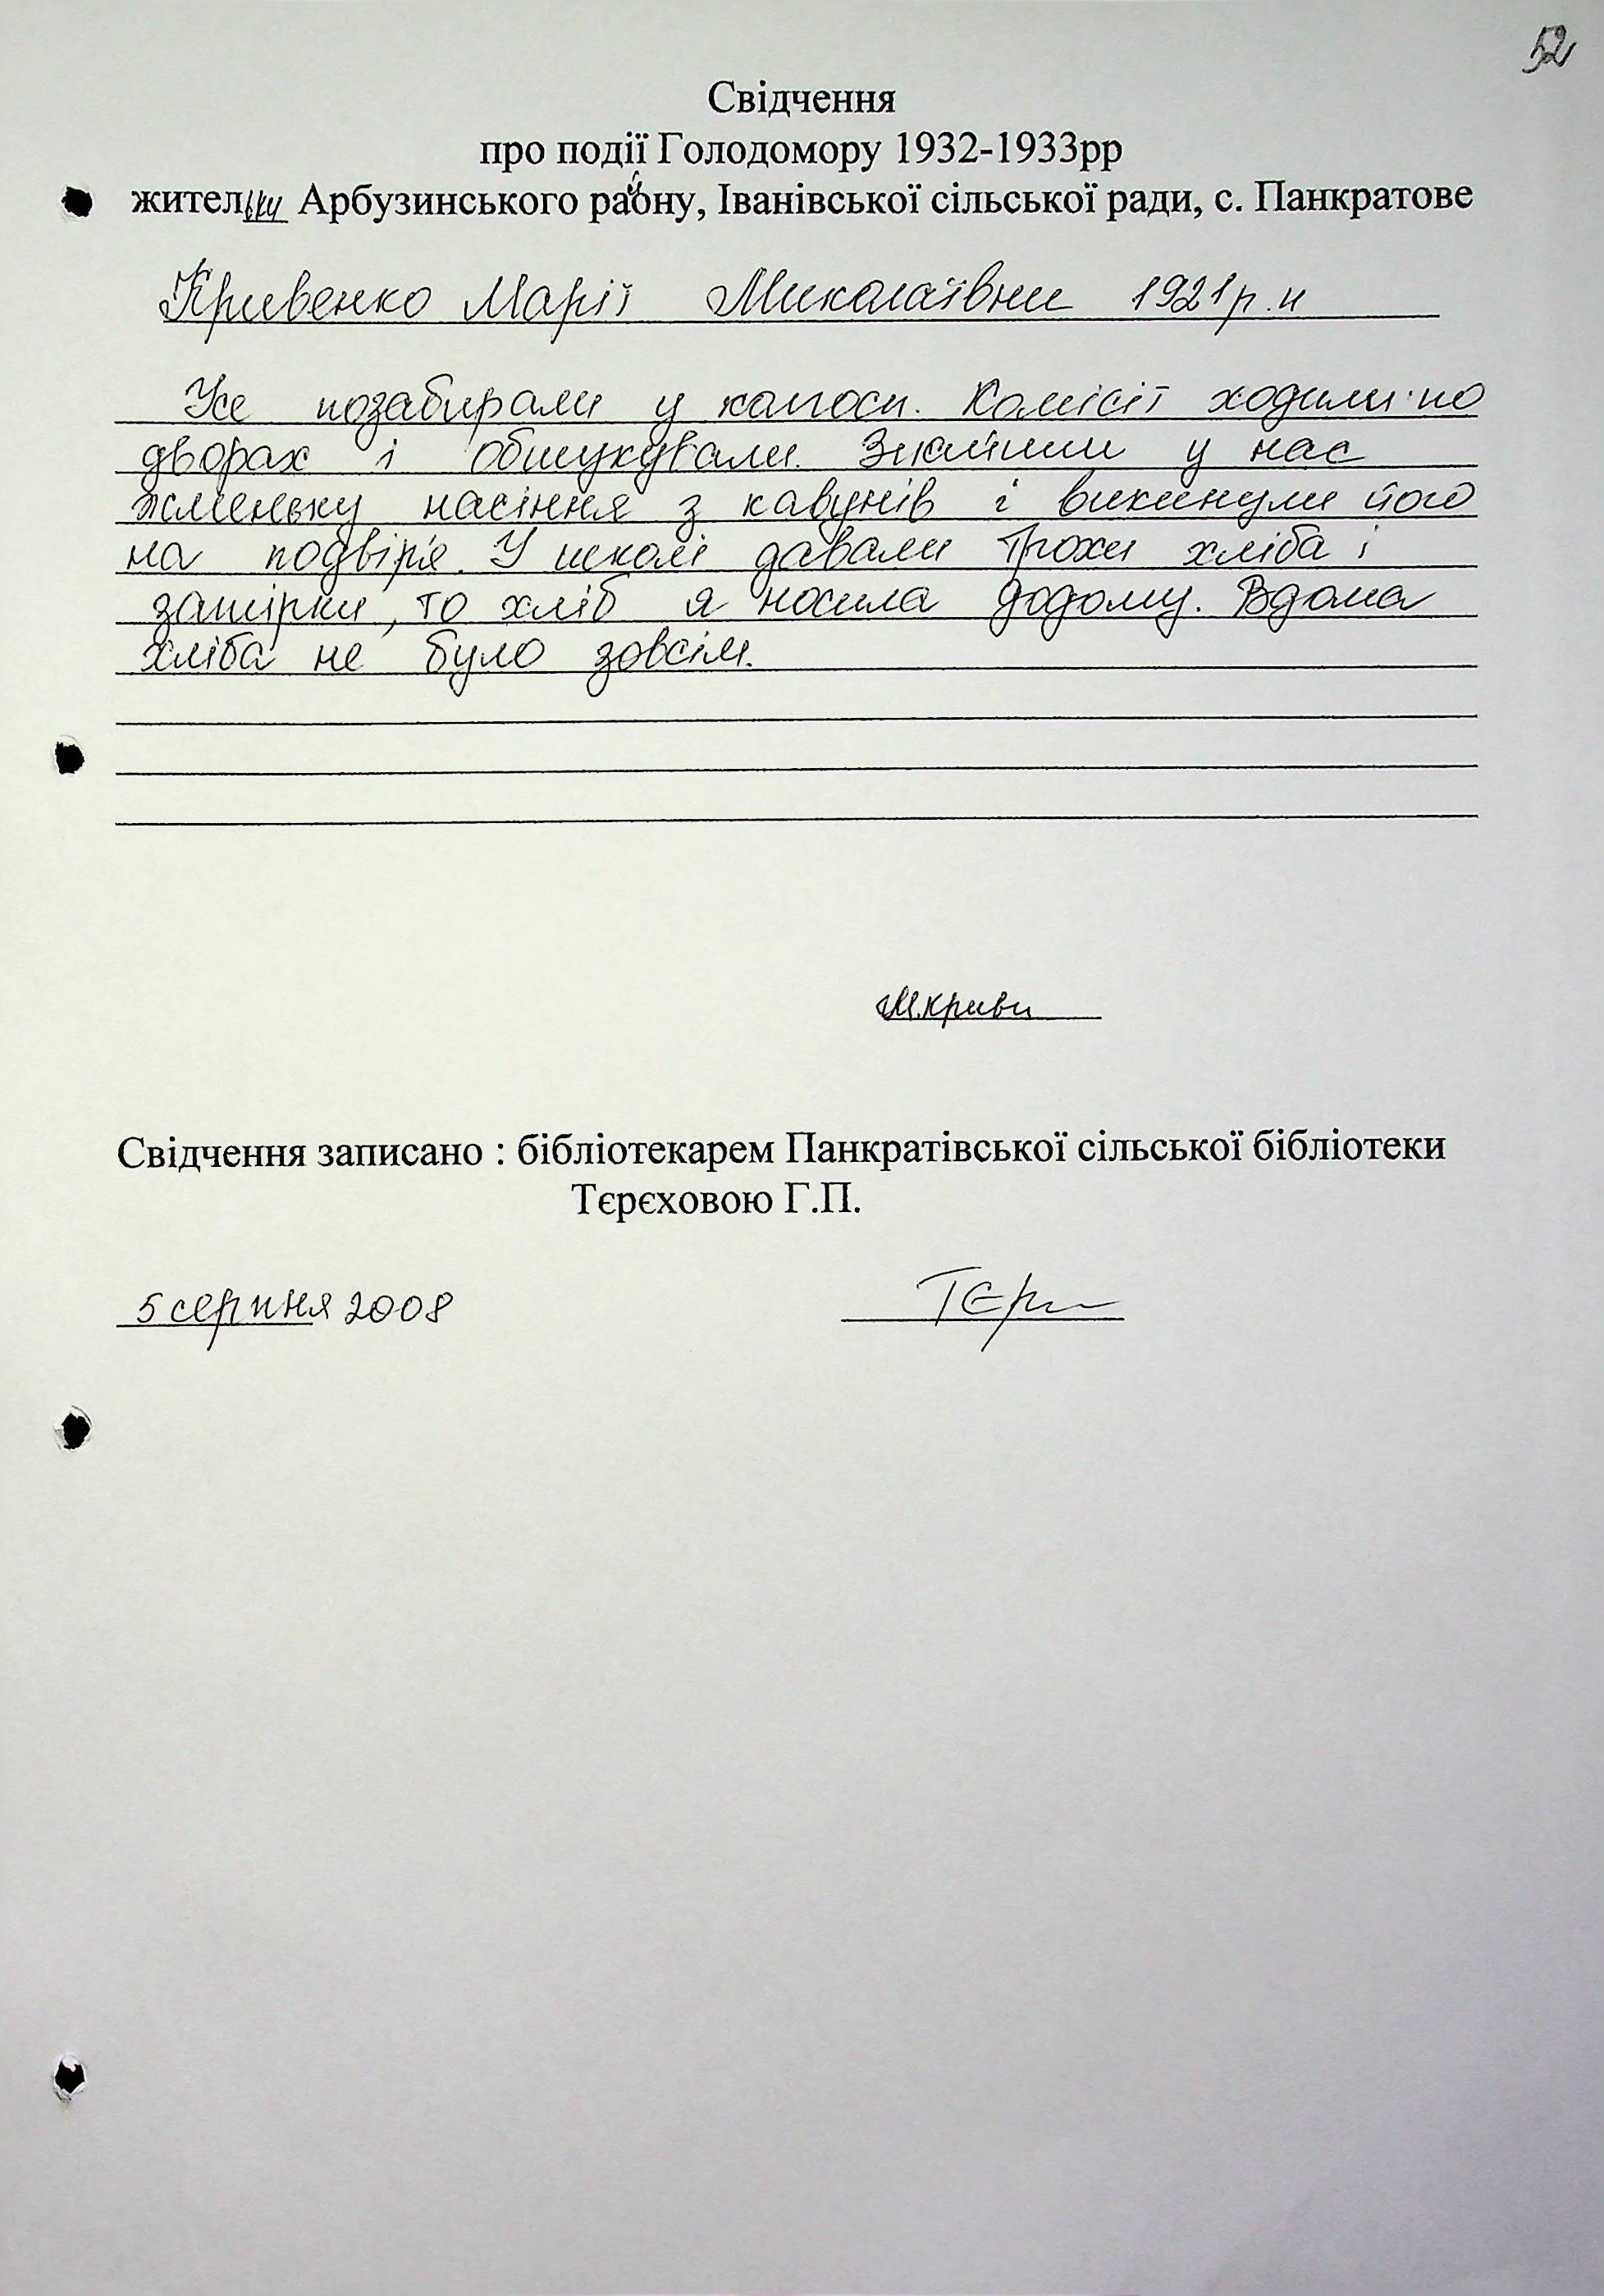 52
Свідчення
про події Голодомору 1932-1933рр
жительки Арбузинського району, Іванівської сільської ради, с. Панкратове
Кривенко Марії Миколаївни 1921р.н
Усе позабирали у колгосп. Комісії ходили по
дворах і обшукували. Знайшли у нас
жменьку насіння з кавунів і викинули його
на подвір'я. У школі давали трохи хліба і
затірки, то хліб я носила додому. Вдома
хліба не було зовсім.
М.Криви
Свідчення записано : бібліотекарем Панкратівської сільської бібліотеки
Тєрєховою Г.П.
5 серпня 2008
Тєр